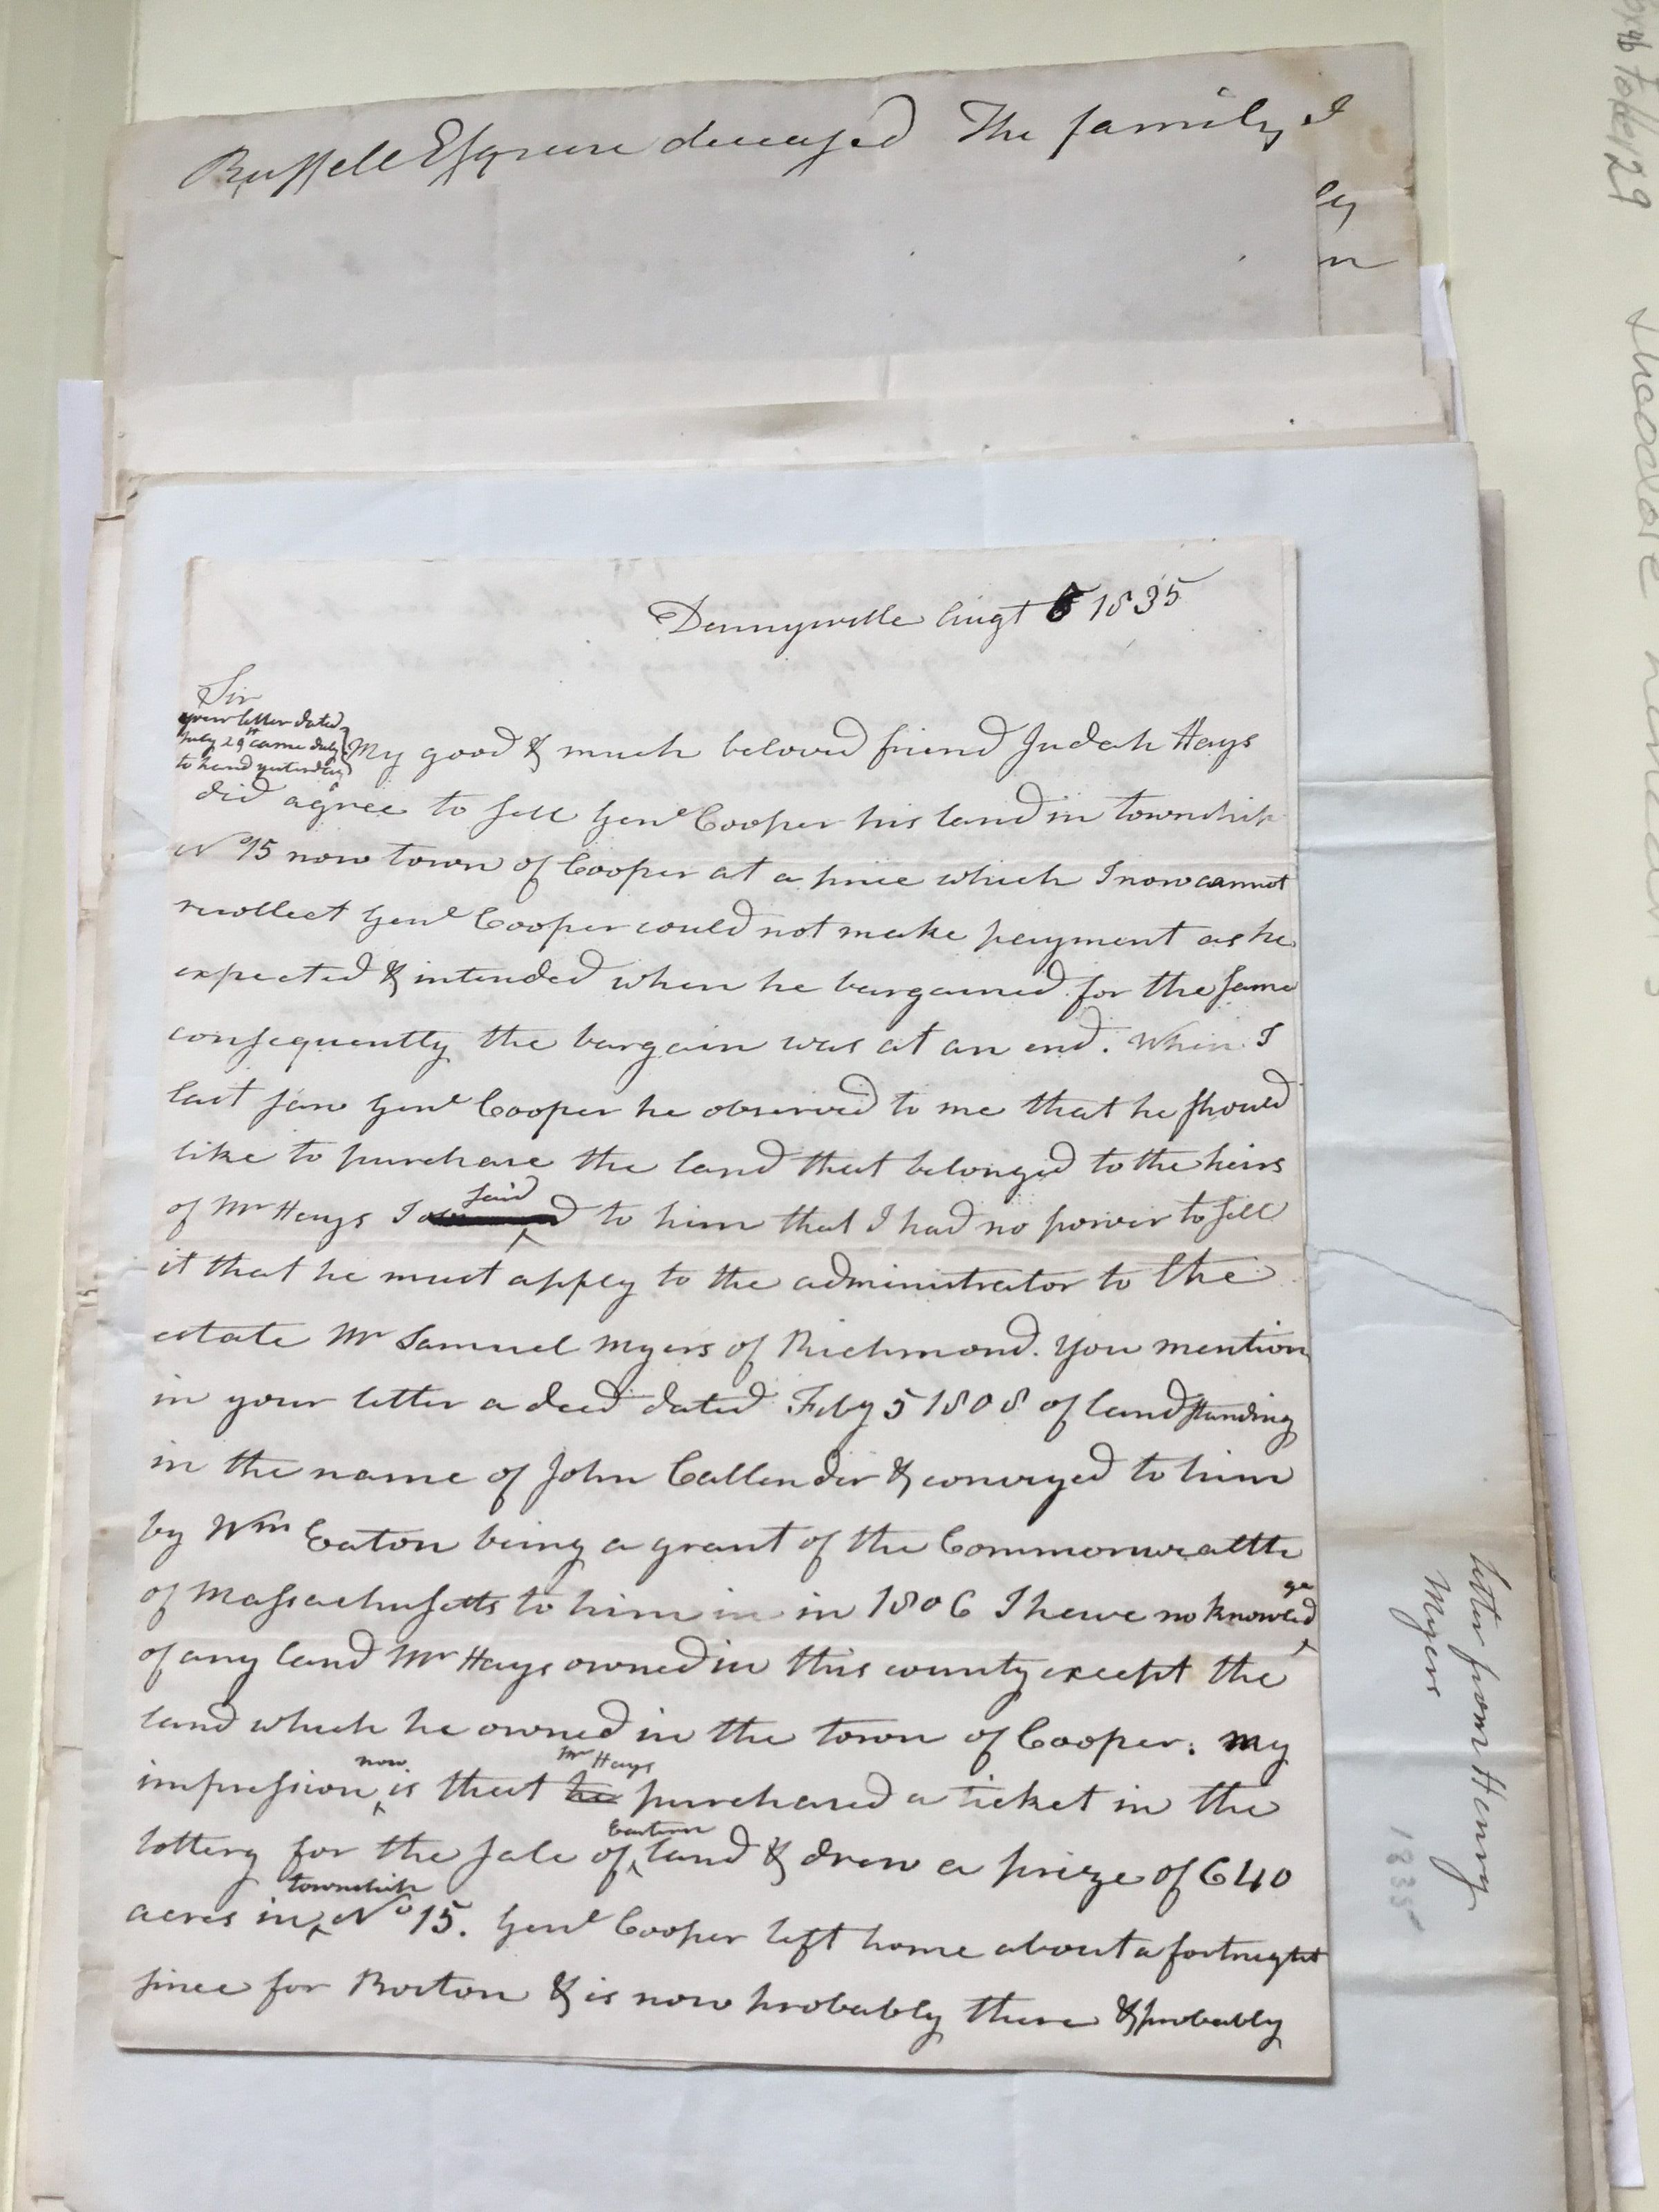 Russell Esquire deceased The family
I
ly
n
Dennysville Augt 6 1835
Sir
your letter dated
July 29th came duly
to hand yesterday
My good & much beloved friend Judah Hays
did agree to sell Genl Cooper his land in township
No 15 now town of Cooper at a price which I now cannot
recollect Genl Cooper could not make payment as he
expected & intended when he bargained for the same
consequently the bargain was at an end. When I
last saw Genl Cooper he observed to me that he should
like to purchase the land that belonged to the heirs
of Mr Hays I said to him that I had no power to sell
it that he must apply to the administrator to the
estate Mr Samuel Myers of Richmond. You mention
in your letter a deed dated Feby 5 1808 of land standing
in the name of John Callender & conveyed to him
by Wm Eaton being a grant of the Commonwealth
of Massachusetts to him in in 1806 I have no knowledge
of any land Mr Hays owned in this county except the
land which he owned in the town of Cooper: my
impression now is that he Mr Hays purchased a ticket in the
lottery for the sale of Eastern land & drew a prize of 640
acres in township No 15. Genl Cooper left home about a fortnight
since for Boston & is now probably there & probably
letter from Henry
Myers
1835